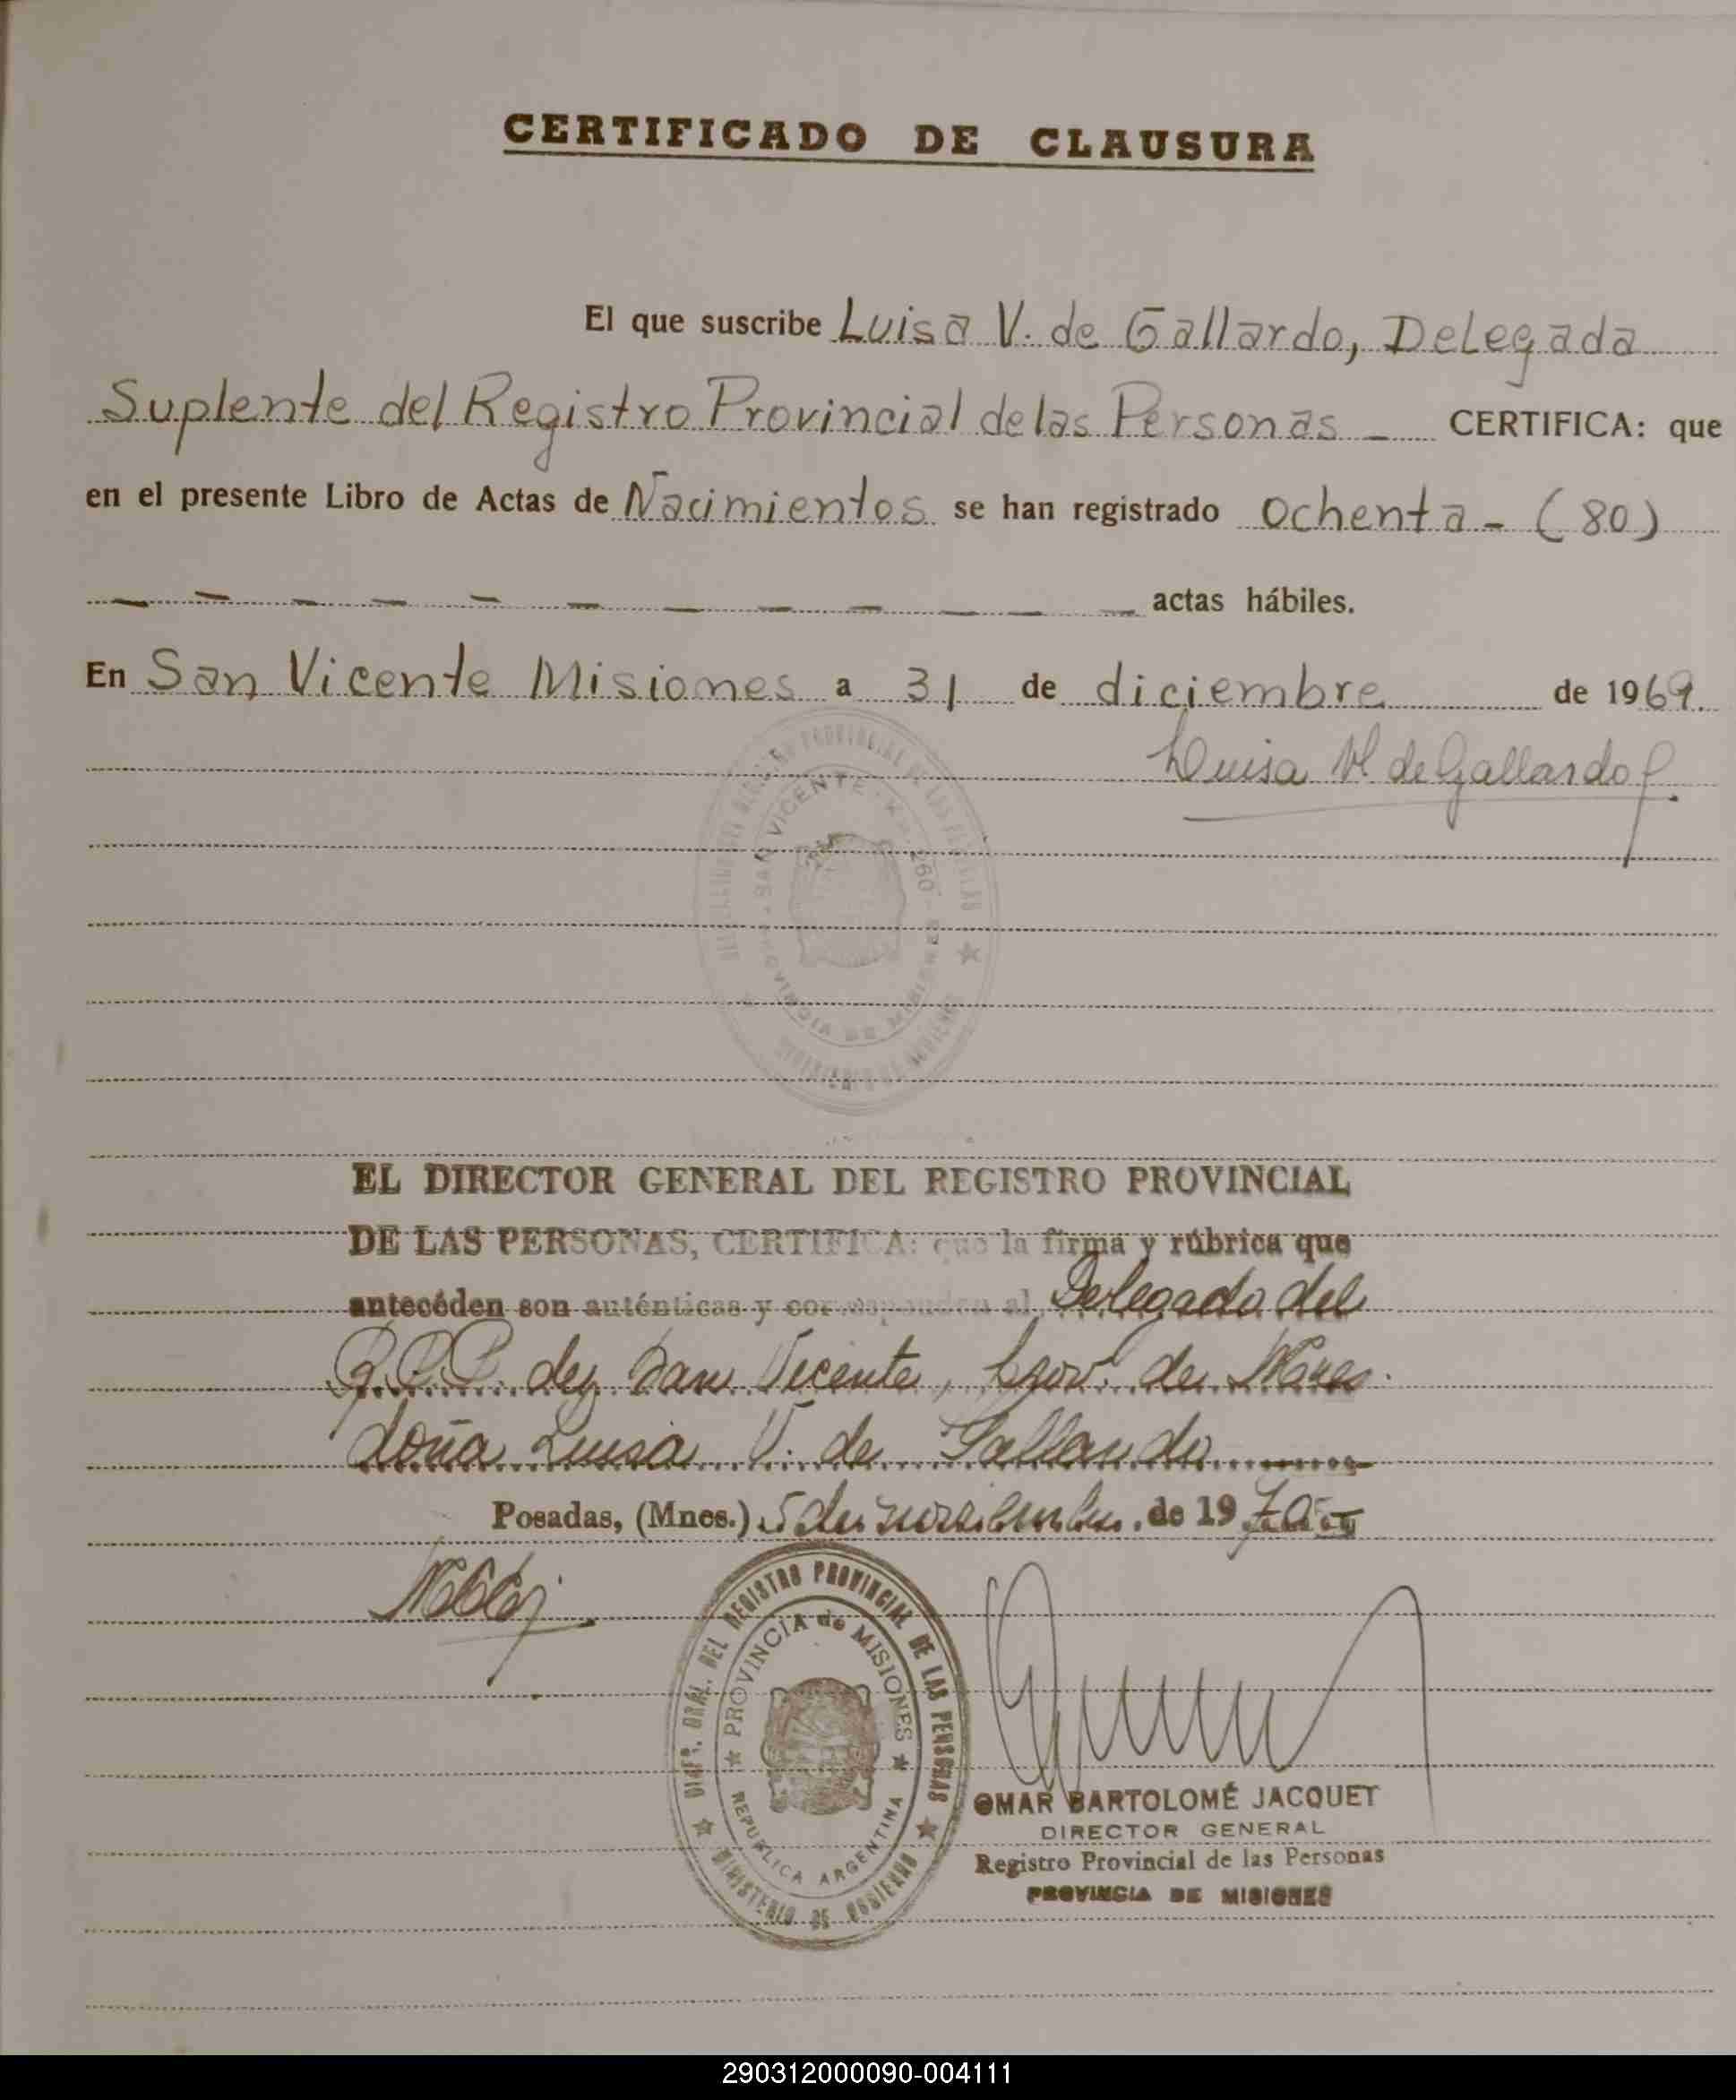 CERTIFICADO DE CLAUSURA
El que suscribe Luisa V. de Gallardo, Delegada
Suplente del Registro Provincial de las Personas — CERTIFICA: que
en el presente Libro de Actas de Nacimientos se han registrado ochenta - (80)
— — — — — — — — — — — — actas hábiles.
En San Vicente Misiones a 31 de diciembre de 1969.
Luisa V. de Gallardo
REGISTRO PROVINCIAL DE LAS PERSONAS
SAN VICENTE - Km. 260 -
PROVINCIA DE MISIONES
EL DIRECTOR GENERAL DEL REGISTRO PROVINCIAL
DE LAS PERSONAS, CERTIFICA: que la firma y rúbrica que
antecéden son auténticas y corresponden al Delegado del
R.P.P. de San Vicente, Prov. de Mnes.
doña Luisa V. de Gallardo
Posadas, (Mnes.) 5 de noviembre de 1970
DIREC. GRAL. DEL REGISTRO PROVINCIAL DE LAS PERSONAS
PROVINCIA de MISIONES
REPUBLICA ARGENTINA
MINISTERIO DE GOBIERNO
OMAR BARTOLOMÉ JACQUET
DIRECTOR GENERAL
Registro Provincial de las Personas
PROVINCIA DE MISIONES
290312000090-004111